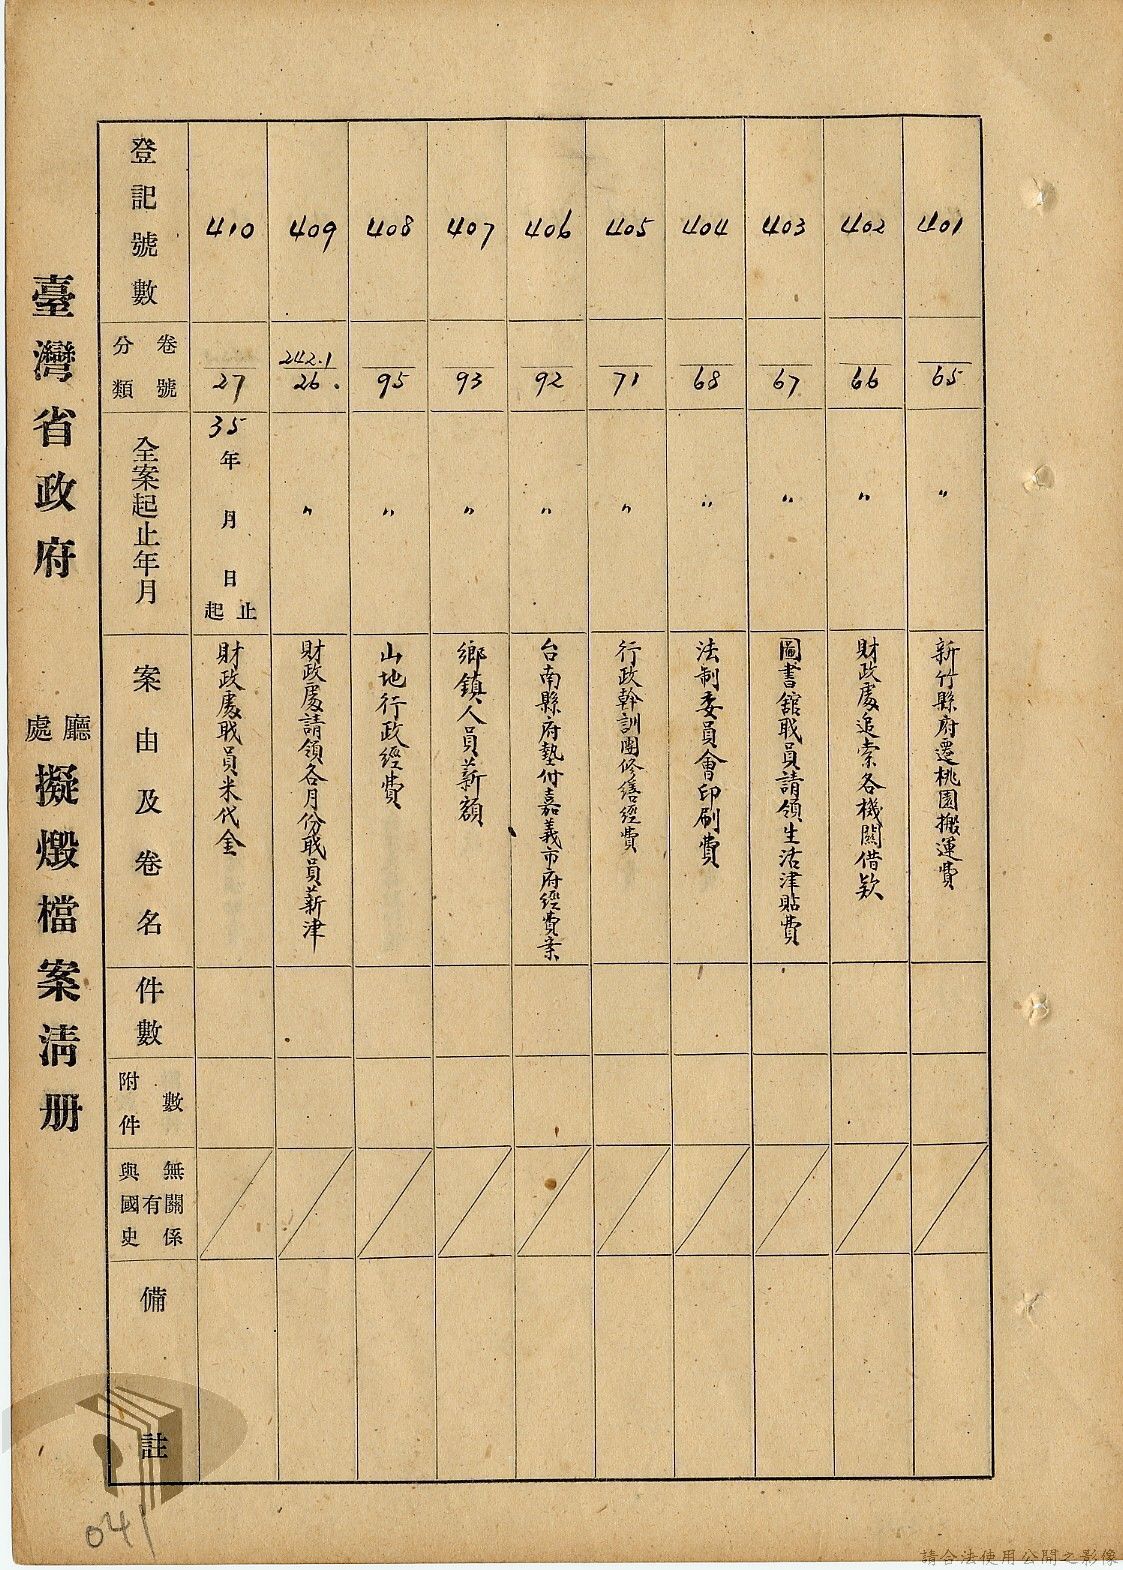 臺灣省政府 廳處 擬燬檔案清册
登記號數
卷號
分類
全案起止年月
案由及卷名
件數
附件數
與國史有無關係
備註
410
27
35年 月 日起止
財政處職員米代金
409
242.1
26.
〃
財政處請領各月份職員薪津
408
95
〃
山地行政經費
407
93
〃
鄉鎮人員薪額
406
92
〃
台南縣府墊付嘉義市府經費案
405
71
〃
行政幹訓團修繕經費
404
68
〃
法制委員會印刷費
403
67
〃
圖書舘職員請領生活津貼費
402
66
〃
財政處追索各機關借款
401
65
〃
新竹縣府遷桃園搬運費
041
請合法使用公開之影像